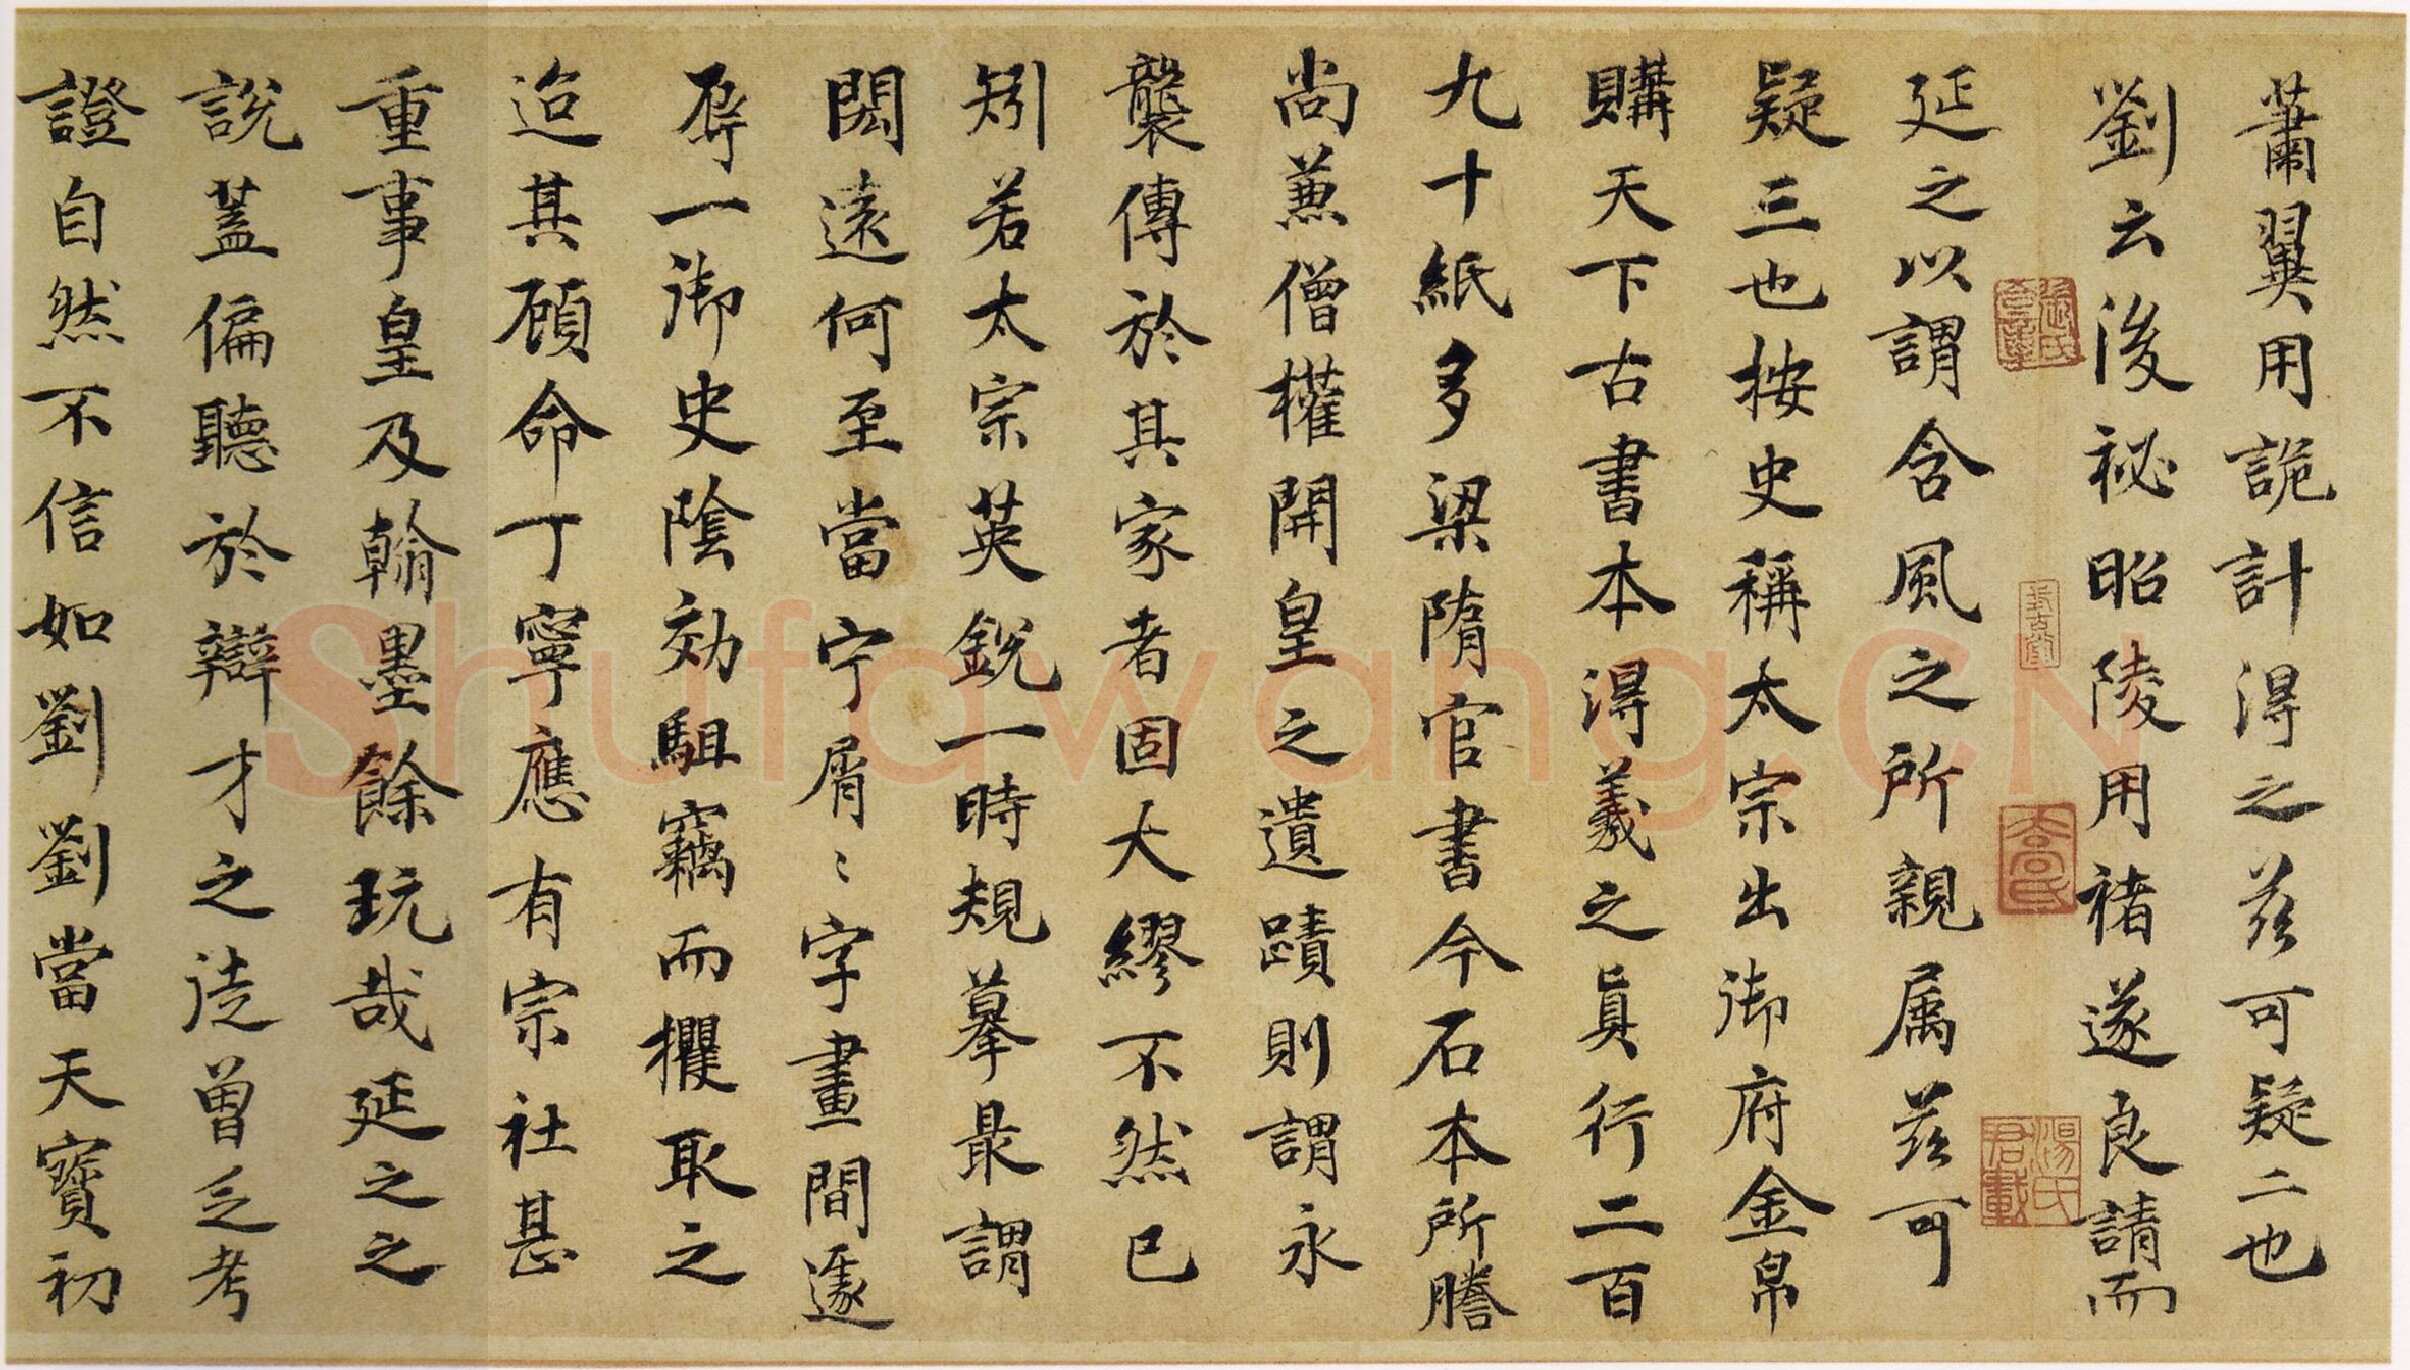 蕭翼用詭計得之茲可疑二也
劉云後祕昭陵用褚遂良請而
延之以謂含風之所親属茲可
疑三也按史稱太宗出御府金帛
購天下古書本得羲之真行二百
九十紙多梁隋官書今石本所謄
尚蕪僧權開皇之遺蹟則謂永
襲傳於其家者固大繆不然已
矧若太宗英銳一時規摹最謂
閎遠何至當宁屑〻字畫間遽
辱一御史陰効駔竊而攫取之
迨其顧命丁寧應有宗社甚
重事皇及翰墨餘玩哉延之之
說蓋偏聽於辯才之徒曾乏考
證自然不信如劉劉當天寶初
湯氏君載
Shufawang.CN